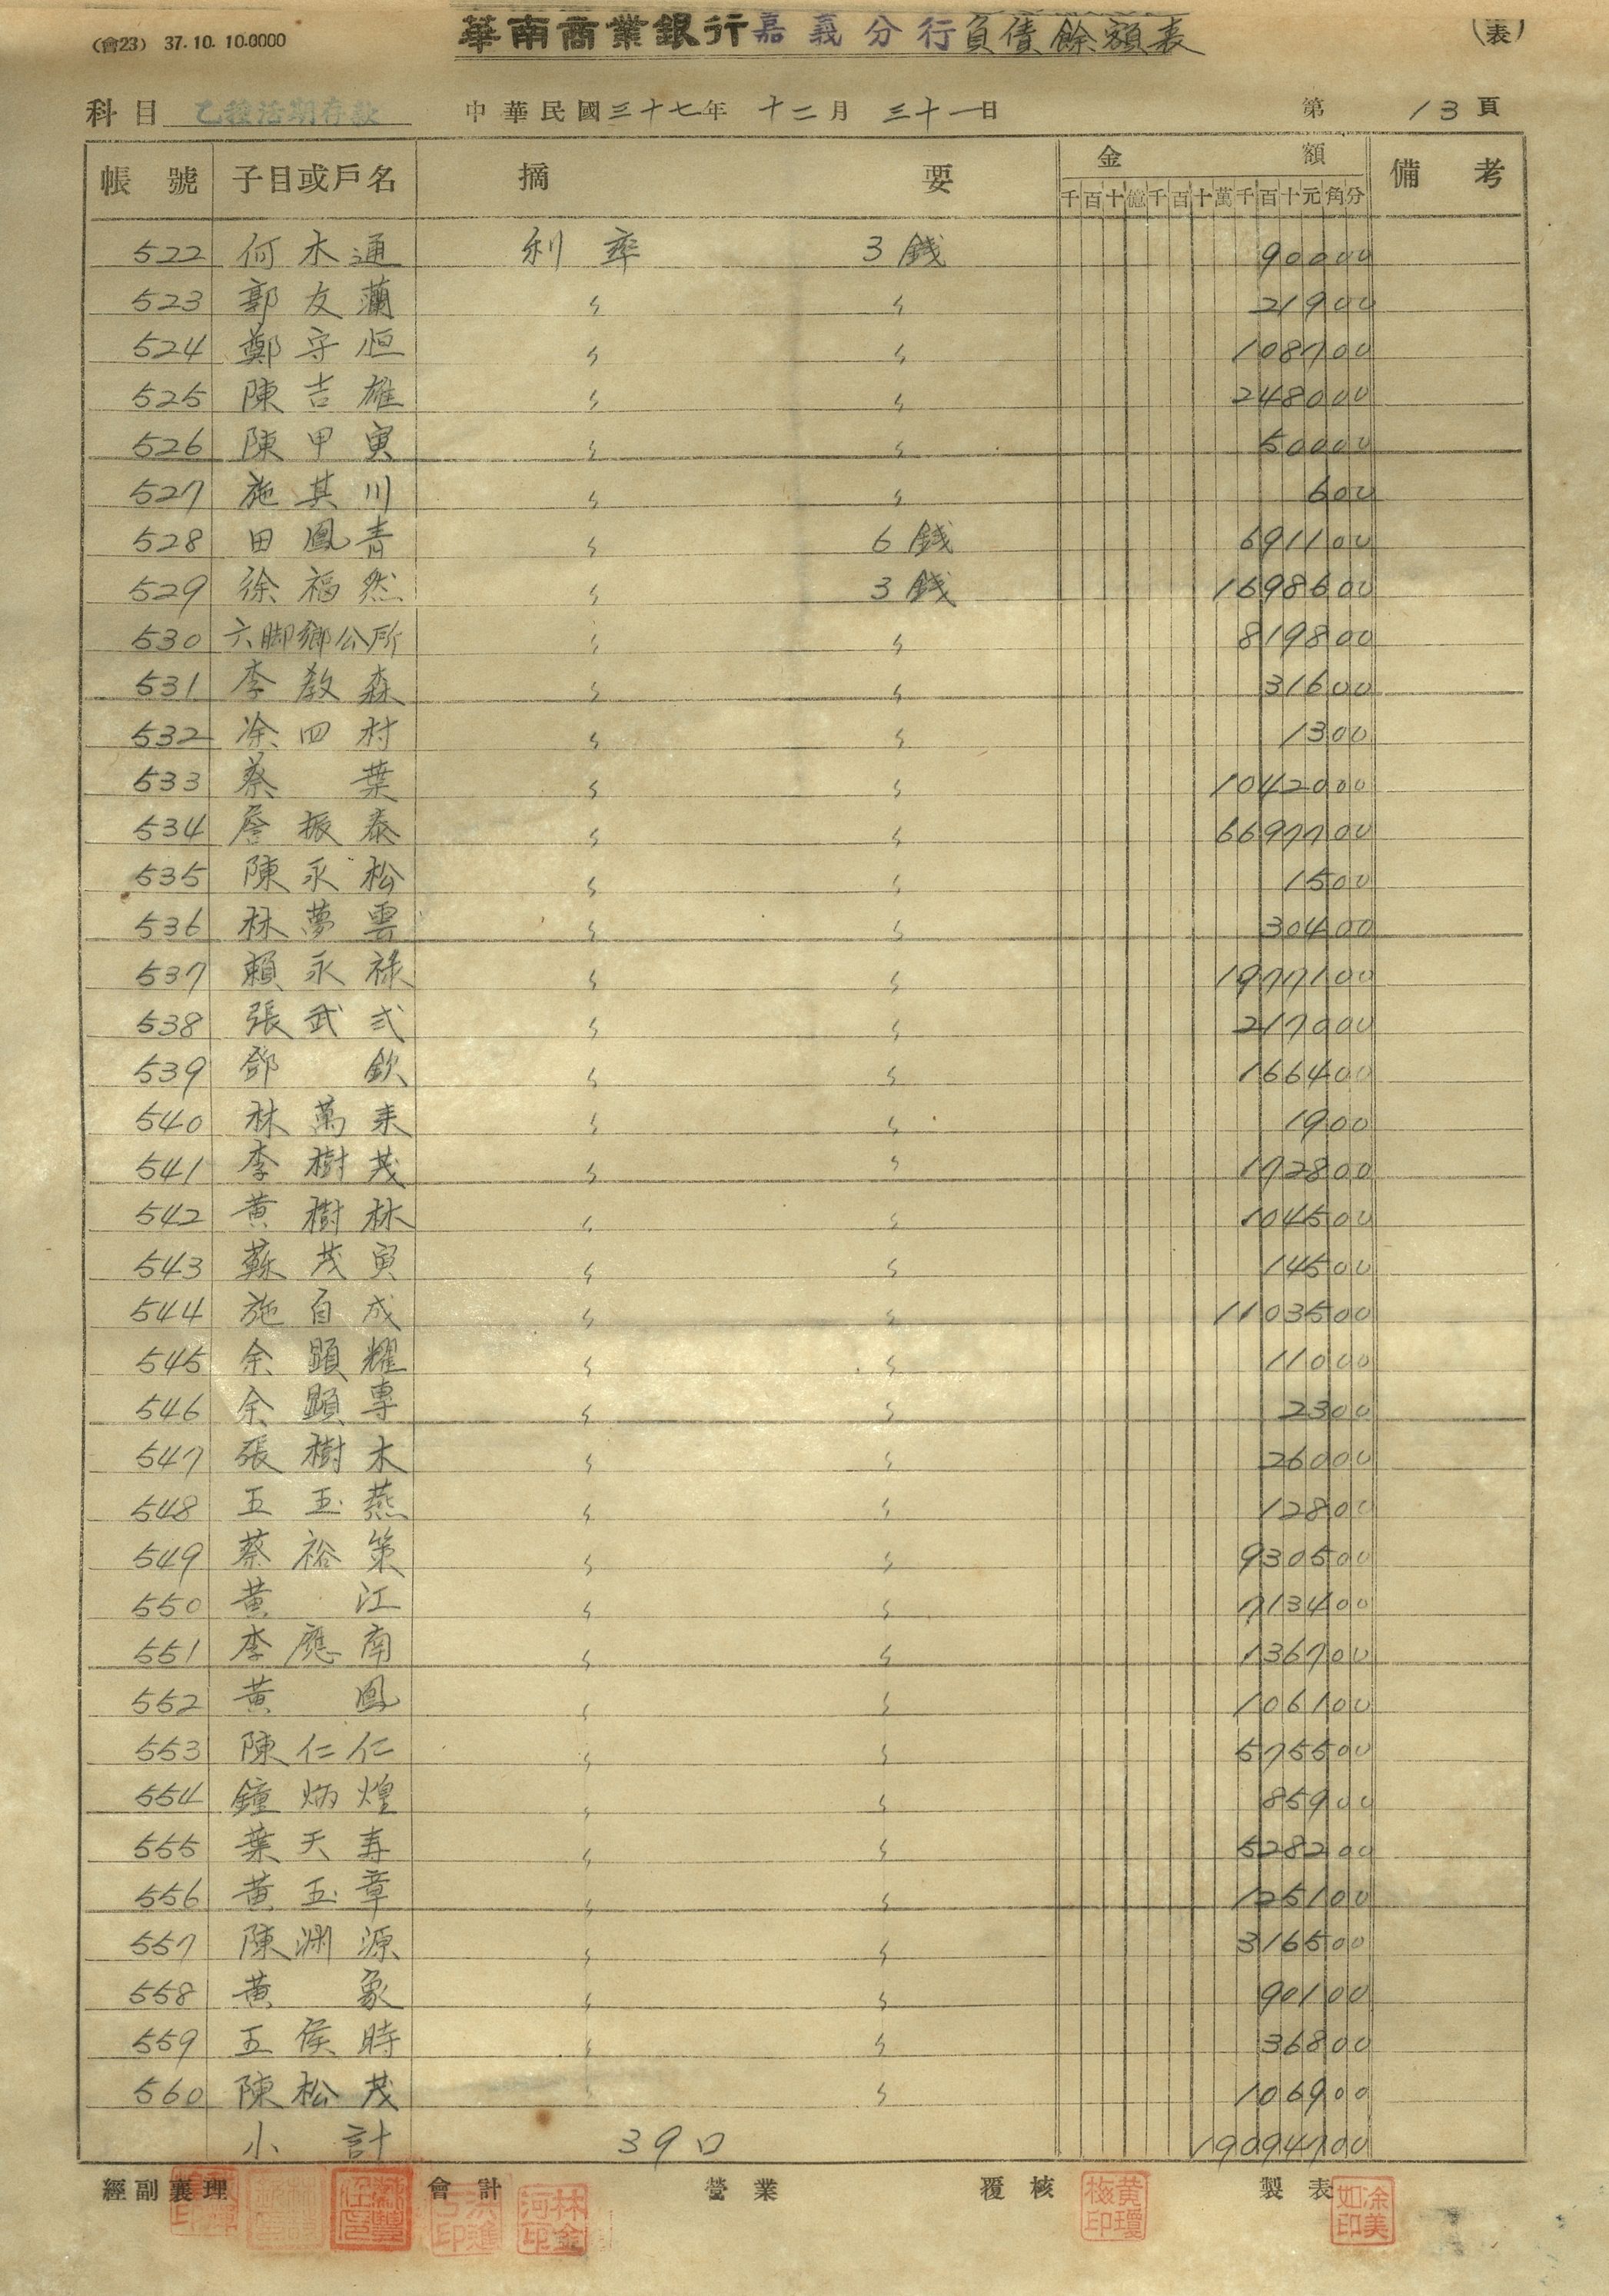 (會23) 37.10.10.0000
華南商業銀行嘉義分行負債餘額表
(表)
科目 乙種活期存款 中華民國三十七年 十二月 三十一日 第 13 頁
帳號 子目或戶名 摘要 金額 備考
千百十億千百十萬千百十元角分
522 何木通 利率 3錢 90000
523 郭友蘭 〃 〃 21900
524 鄭守恒 〃 〃 108700
525 陳吉雄 〃 〃 248000
526 陳甲寅 〃 〃 50000
527 施其川 〃 〃 600
528 田鳳青 〃 6錢 691100
529 徐福然 〃 3錢 1698600
530 六脚鄉公所 〃 〃 819800
531 李教森 〃 〃 31600
532 涂四村 〃 〃 1300
533 蔡葉 〃 〃 1042000
534 詹振泰 〃 〃 6697700
535 陳永松 〃 〃 1500
536 林夢雲 〃 〃 30400
537 賴永祿 〃 〃 1977100
538 張武弍 〃 〃 217000
539 鄧欽 〃 〃 166400
540 林萬來 〃 〃 1900
541 李樹茂 〃 〃 192800
542 黃樹林 〃 〃 104500
543 蘇茂寅 〃 〃 14500
544 施自成 〃 〃 1103500
545 余顕耀 〃 〃 11000
546 余顕專 〃 〃 2300
547 張樹木 〃 〃 26000
548 王玉燕 〃 〃 12800
549 蔡裕策 〃 〃 930500
550 黃江 〃 〃 713400
551 李應南 〃 〃 136700
552 黃鳳 〃 〃 106100
553 陳仁仁 〃 〃 575500
554 鐘炳煌 〃 〃 85900
555 葉天寿 〃 〃 528200
556 黃玉章 〃 〃 125100
557 陳渊源 〃 〃 316500
558 黃象 〃 〃 90100
559 王侯時 〃 〃 36800
560 陳松茂 〃 〃 106900
小計 39口 19094700
經副襄理 會計 營業 覆核 製表
林金河印
黃瓊梅印
涂美如印